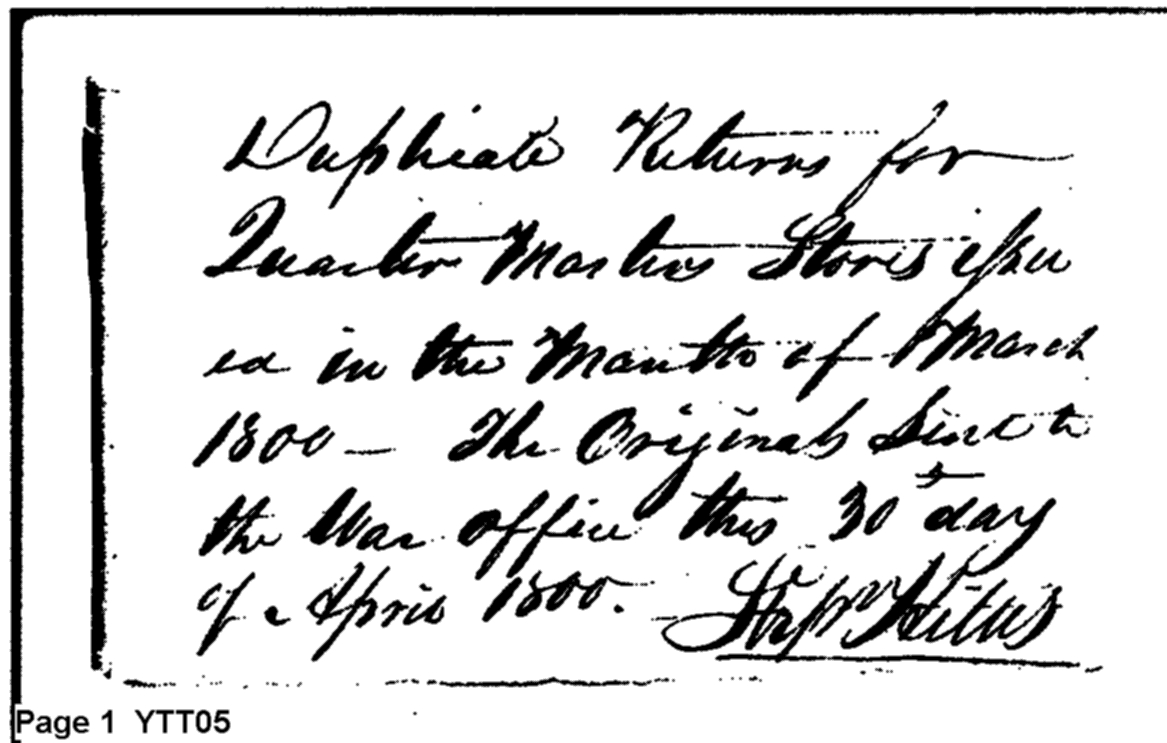 Duplicate Returns for
Quarter Masters Stores issu
ed in the Month of March
1800 — The Originals Sent to
the War office this 30th day
of April 1800.
Page 1 YTT05